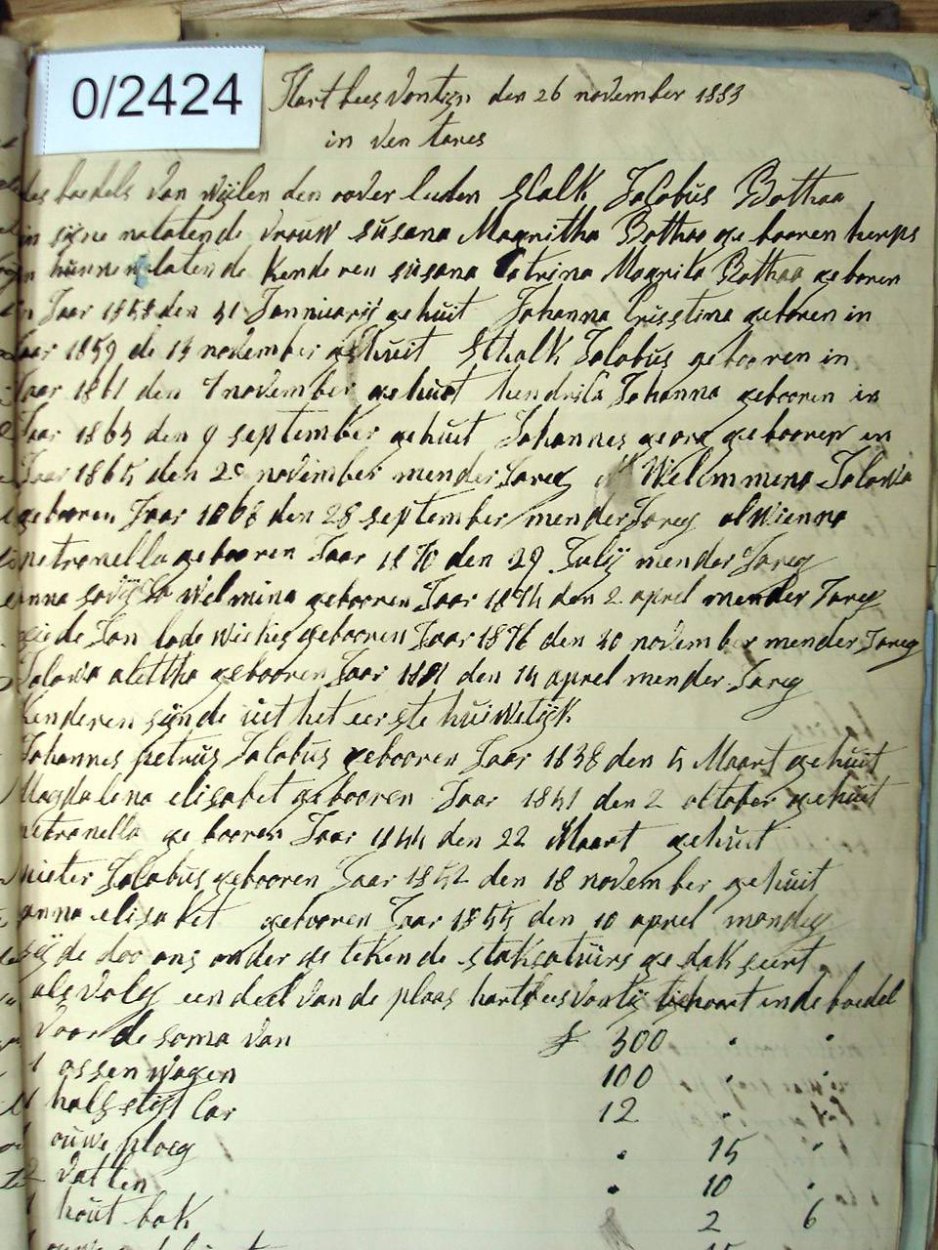 0/2424
Hartbeesvontijn den 26 november 1883
in ven tares
des boedels van wijlen den oover leeden Stalk Jacobus Bothaa
en sijne natatende vrouw susana Magritha Bothaa ge booren herps
hunnen latende kenderen susana Catrina Magrita Bothaa geboren
in Jaar 1858 den 31 Jannuarij gehuit Johanna Crisstina geboren in
Jaar 1859 de 13 november gehuit Sthalk Jacobus gebooren in
Jaar 1861 den 7 november gehuit hendrica Johanna gebooren in
Jaar 1863 den 9 september gehuit Johannes georg gebooren in
Jaar 1865 den november menderJareg Welemmena Jacova
gebooren Jaar 1868 den 28 september menderJareg alwienna
petronella gebooren Jaar 1870 den 29 Julij mender Jareg
anna welmina gebooren Jaar 1874 den 2 aprel mender Jareg
lode wickes gebooren Jaar 1876 den 30 november mender Jareg
Jacova alettha gebooren Jaar 1881 den 14 aprel mender Jareg
kenderen sijnde uit het eerste huiwelijk
Johannes petrus Jacobus gebooren Jaar 1838 den 5 Maart gehuit
Magdalena elisabet gebooren Jaar 1841 den 2 oktober gehuit
petronella ge booren Jaar 1844 den 22 Maart gehuit
pieter Jacobus gebooren Jaar 1852 den 18 november gehuit
anna elisabet gebooren Jaar 1855 den 10 aprel mondeg
de doo ons onder ge tekende ge dak seert
als volg een deel van de plaas hartbeesvontij in de boedel
voor de soma van £ 300 " "
1 ossen wagen 100 " "
1 half slijt Car 12 " "
1 ouwe ploeg " 15 "
2 vatten " 10 "
1 hout bak 2 6